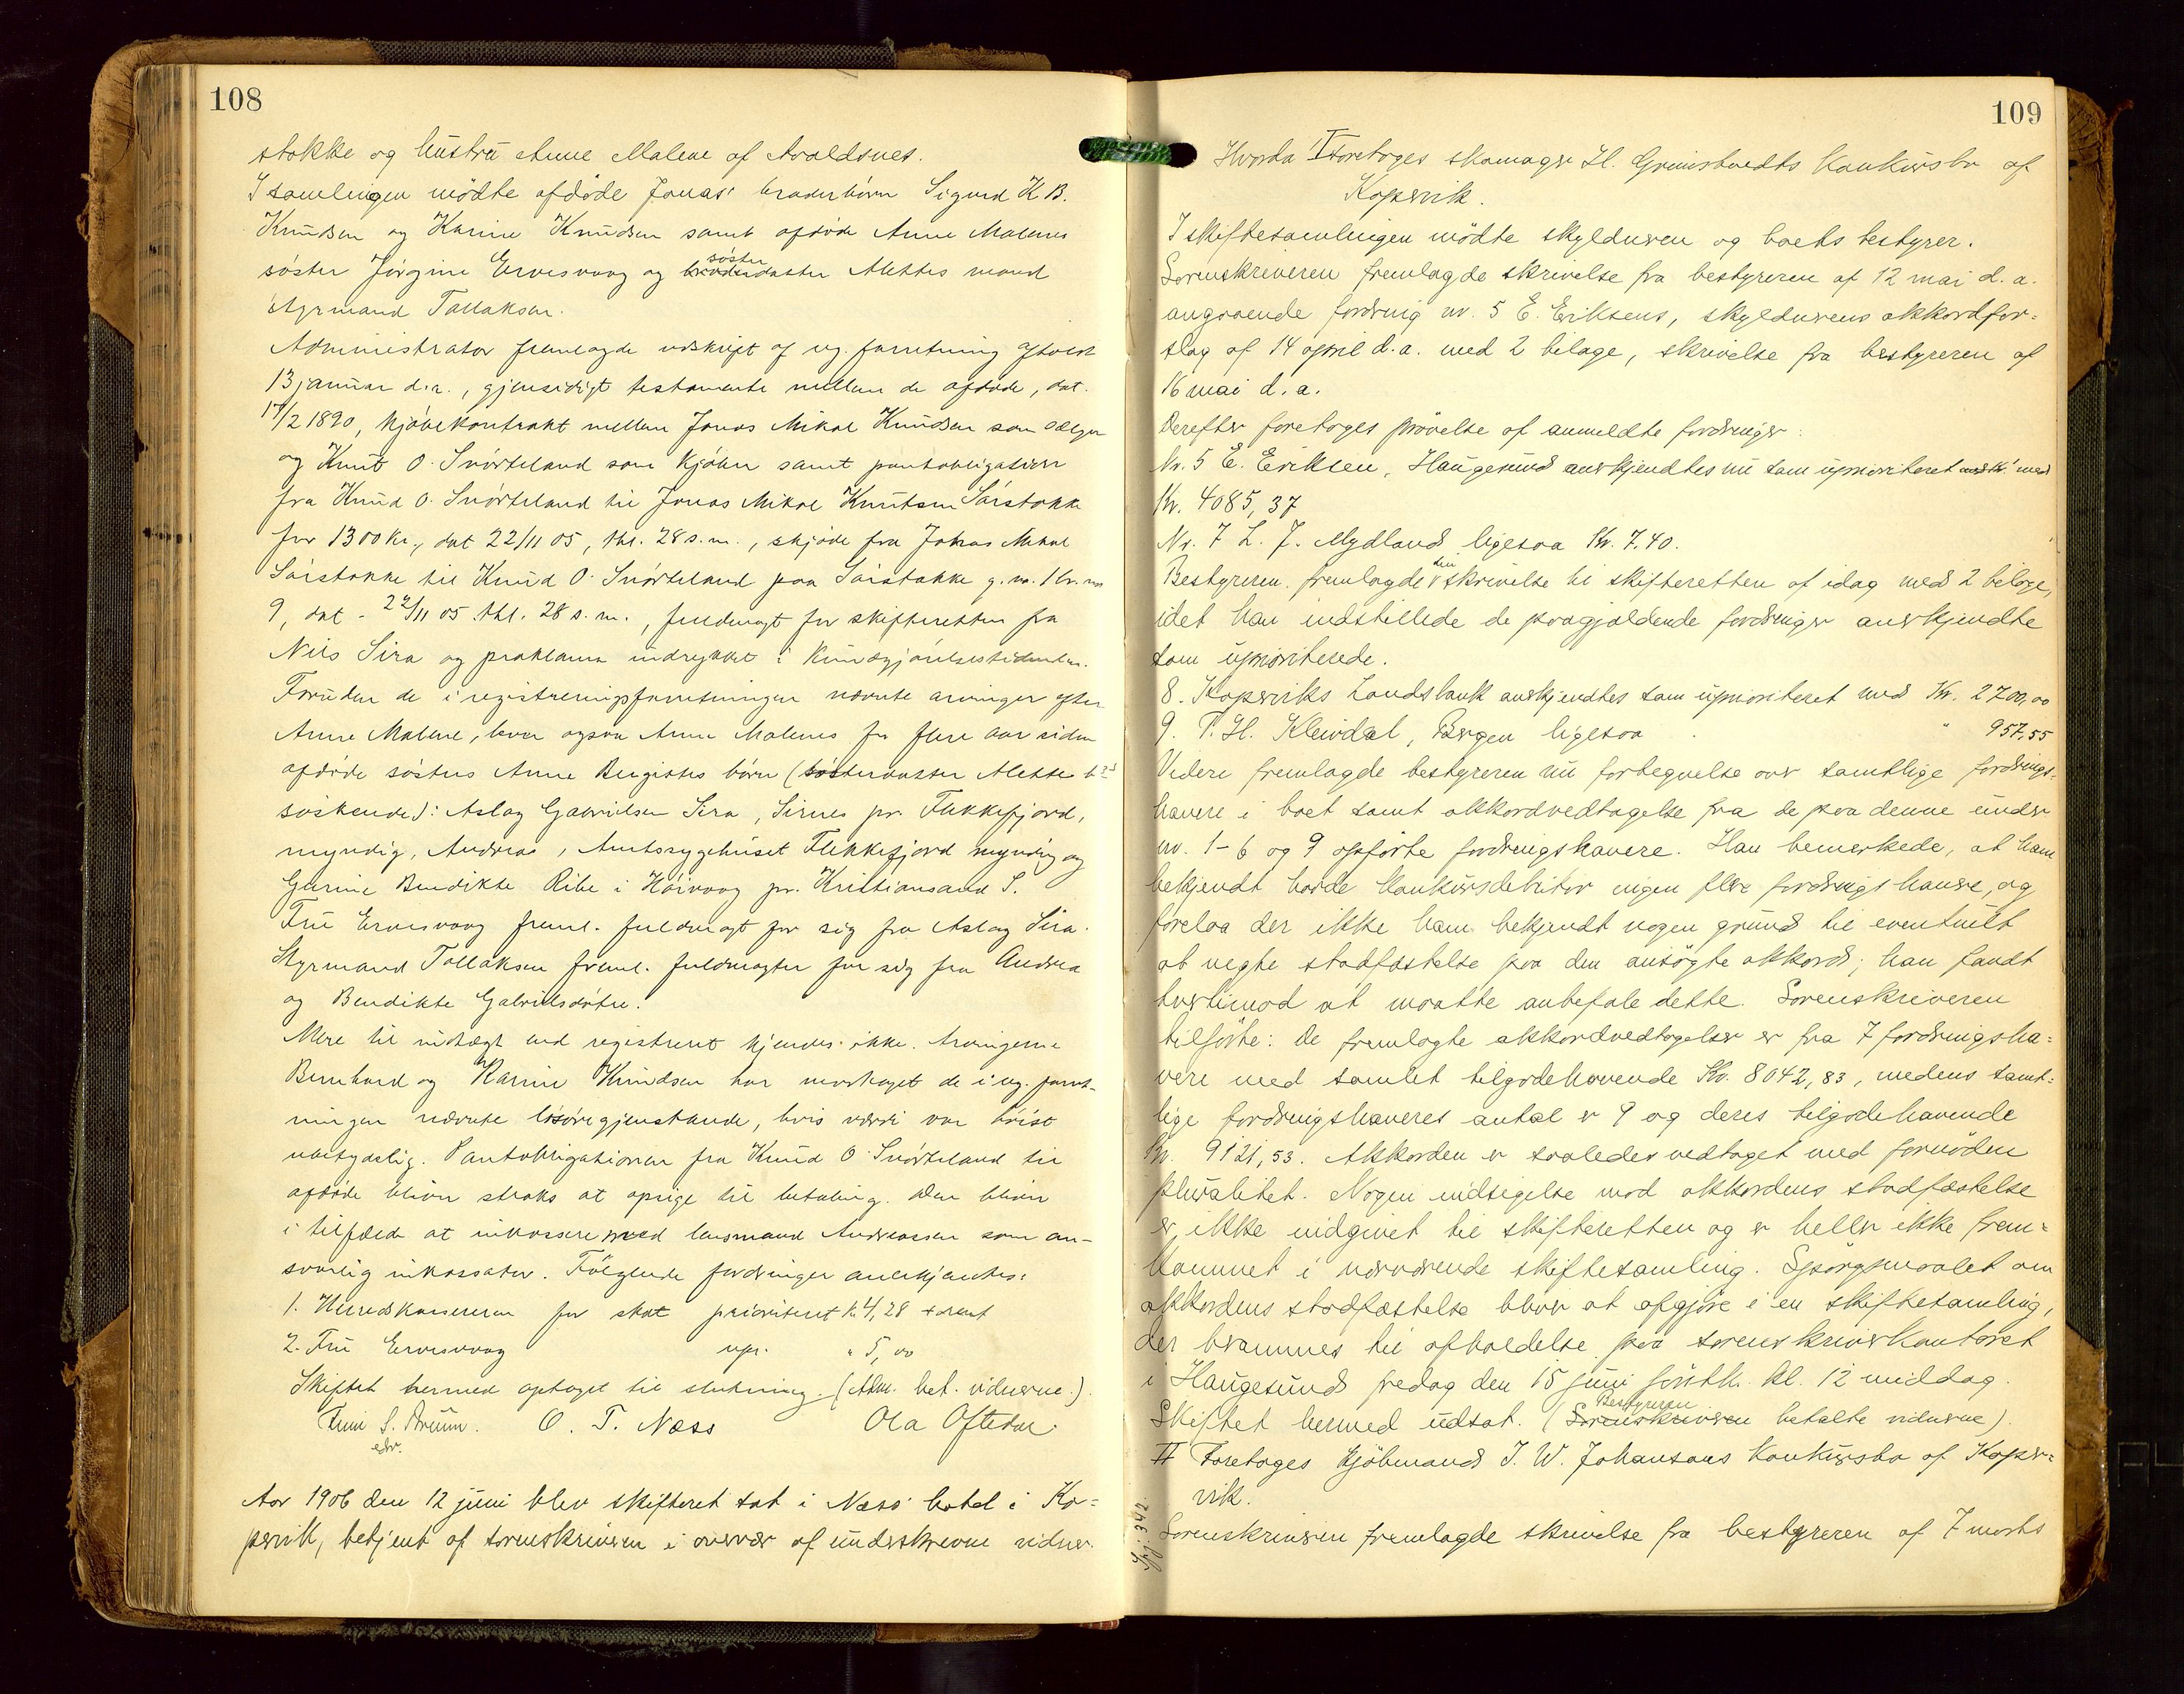 108
stokke og hustru Anne Malene af Avaldsnes.
I samlingen mödte afdöde Jonas' broderbörn Sigurd K B.
Knudsen og Karine Knudsen samt afdöde Anne Malenes
söster Jörgine Ervesvaag og söster broderdatter Alettes mand
styrmand Tallaksen.
Administrator fremlagde udskrift af reg. forretning afholdt
13 januar d.a., gjensidigt testamente mellem de afdöde, dat.
17/2 1890, kjöbekontrakt mellem Jonas Mikal Knudsen som sælger
og Knut O. Snörteland som kjöber samt pantobligation
fra Knud O. Snörteland til Jonas Mikal Knutsen Sörstokke
for 1300 Kr., dat 22/11 05, thl. 28 s.m., skjöde fra Jonas Mikal
Sörstokke til Knud O. Snörteland paa Sörstokke g. no. 1 br. no
9, dat. 22/11 05 thl. 28 s.m., fuldmagt for skifteretten fra
Nils Sira og proklama indrykket i Kundgjörelsestidende.
Foruden de i registreringsforretningen nævnte arvinger efter
Anne Malene, lever ogsaa Anne Malenes for flere aar siden
afdöde sösters Anne Bergittes börn (sösterdatter Alettes
söskende): Aslag Gabrielsen Sira, Sirnes pr. Flekkefjord,
myndig, Andrea, Amtssygehuset Flekkefjord myndig og
Gurine Bendikte Ribe i Höivaag pr. Kristiansand S.
Fru Ervesvaag freml. fuldmagt for sig fra Aslag Sira.
Styrmand Tallaksen freml. fuldmagter for sig fra Andrea
og Bendikte Gabrielsdötre.
Mere til indtægt end registreret kjendes ikke. Arvingerne
Bernhard og Karine Knudsen har modtaget de i reg. forret-
ningen nævnte lösöregjenstande, hvis værdi var höist
ubetydelig. Pantobligationen fra Knud O Snörteland til
afdöde bliver straks at opsige til betaling. Den bliver
i tilfælde at inkassere med lensmand Andreassen som an-
svarlig inkassator. Fölgende fordringer anerkjendtes:
1. Herredskassereren for skat prioriteret k. 4,28 + rent
2. Fru Ervesvaag upr. " 5,00
Skiftet hermed optaget til slutning. (Adm. bet. vidnerne.).
O. T. Næss Ola Oftedal
Aar 1906 den 12 juni blev skifteret sat i Næss' hotel i Ko=
pervik, betjent af sorenskriveren i overvær af underskrevne vidner.
109
Hvorda I Foretoges skomager H. Grimstvedts konkursbo af
Kopervik.
I skiftesamlingen mödte skyldneren og boets bestyrer.
Sorenskriveren fremlagde skrivelse fra bestyreren af 12 mai d. a.
angaaende fordring nr. 5 E. Eriksens, skyldnerens akkordfor=
slag af 14 april d. a. med 2 bilage, skrivelse fra bestyreren af
16 mai d. a.
Derefter foretoges prövelse af anmeldte fordringer:
Nr. 5 E. Eriksen, Haugesund anerkjendtes nu som uprioriteret med
Kr. 4085,37
Nr. 7 L. J. Mydland ligesaa Kr. 7.40.
Bestyreren fremlagde den skrivelse til skifteretten af idag med 2 bilage,
idet han indstillede de paagjældende fordringer anerkjendte
som uprioriterede.
8. Koperviks Landsbank anerkjendtes som uprioriteret med Kr. 2700,00
9. P. H. Kleivdal, Bergen ligesaa " 957,55
Videre fremlagde bestyreren nu fortegnelse over samtlige fordrings-
havere i boet samt akkordvedtagelse fra de paa denne under
nr. 1-6 og 9 opförte fordringshavere. Han bemerkede, at ham
bekjendt havde konkursdebitor ingen flere fordringshavere, og
forelaa der ikke ham bekjendt nogen grund til eventuelt
at negte stadfæstelse paa den ansögte akkord; han fandt
tvertimod at maatte anbefale dette. Sorenskriveren
tilförte: De fremlagte akkordvedtagelser er fra 7 fordringsha=
vere med samlet tilgodehavende Kr. 8042,83, medens samt=
lige fordringshaveres antal er 9 og deres tilgodehavende
Kr. 9121,53. Akkorden er saaledes vedtaget med fornöden
pluralitet. Nogen indsigelse mod akkordens stadfæstelse
er ikke indgivet til skifteretten og er heller ikke frem=
kommet i nærværende skiftesamling. Spörgsmaalet om
akkordens stadfæstelse bliver at afgjöre i en skiftesamling,
der berammes til afholdelse paa sorenskriverkontoret
i Haugesund fredag den 15 juni förstk. kl. 12 middag.
Skiftet hermed udsat. (Bestyreren Sorenskriveren betalte vidnerne).
II Foretoges kjöbmand J. W. Johansens konkursbo af Koper=
vik.
Sorenskriveren fremlagde skrivelse fra bestyreren af 7 marts